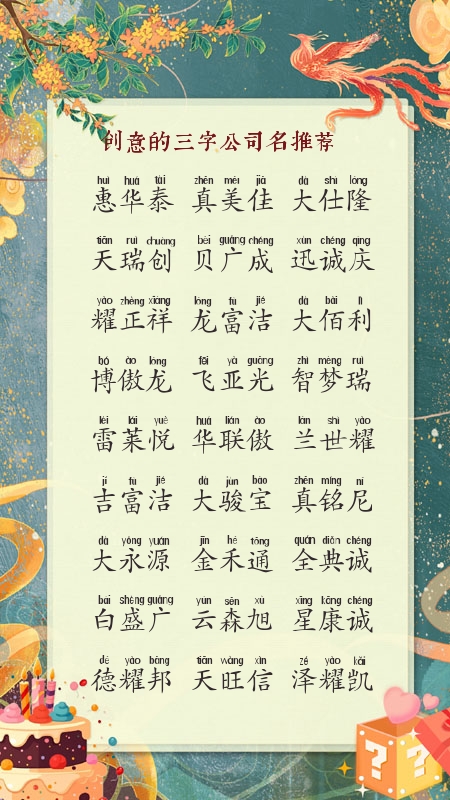 创意的三字公司名推荐
huì huá tài zhēn měi jiā dà shì lóng
惠华泰 真美佳 大仕隆
tiān ruì chuàng bèi guǎng chéng xùn chéng qìng
天瑞创 贝广成 迅诚庆
yào zhèng xiáng lóng fù jié dà bǎi lì
耀正祥 龙富洁 大佰利
bó ào lóng fēi yà guāng zhì mèng ruì
博傲龙 飞亚光 智梦瑞
léi lái yuè huá lián ào lán shì yào
雷莱悦 华联傲 兰世耀
jí fù jié dà jùn bǎo zhēn míng ní
吉富洁 大骏宝 真铭尼
dà yǒng yuán jīn hé tōng quán diǎn chéng
大永源 金禾通 全典诚
bái shèng guǎng yún sēn xù xīng kāng chéng
白盛广 云森旭 星康诚
dé yào bāng tiān wàng xìn zé yào kǎi
德耀邦 天旺信 泽耀凯
? ?